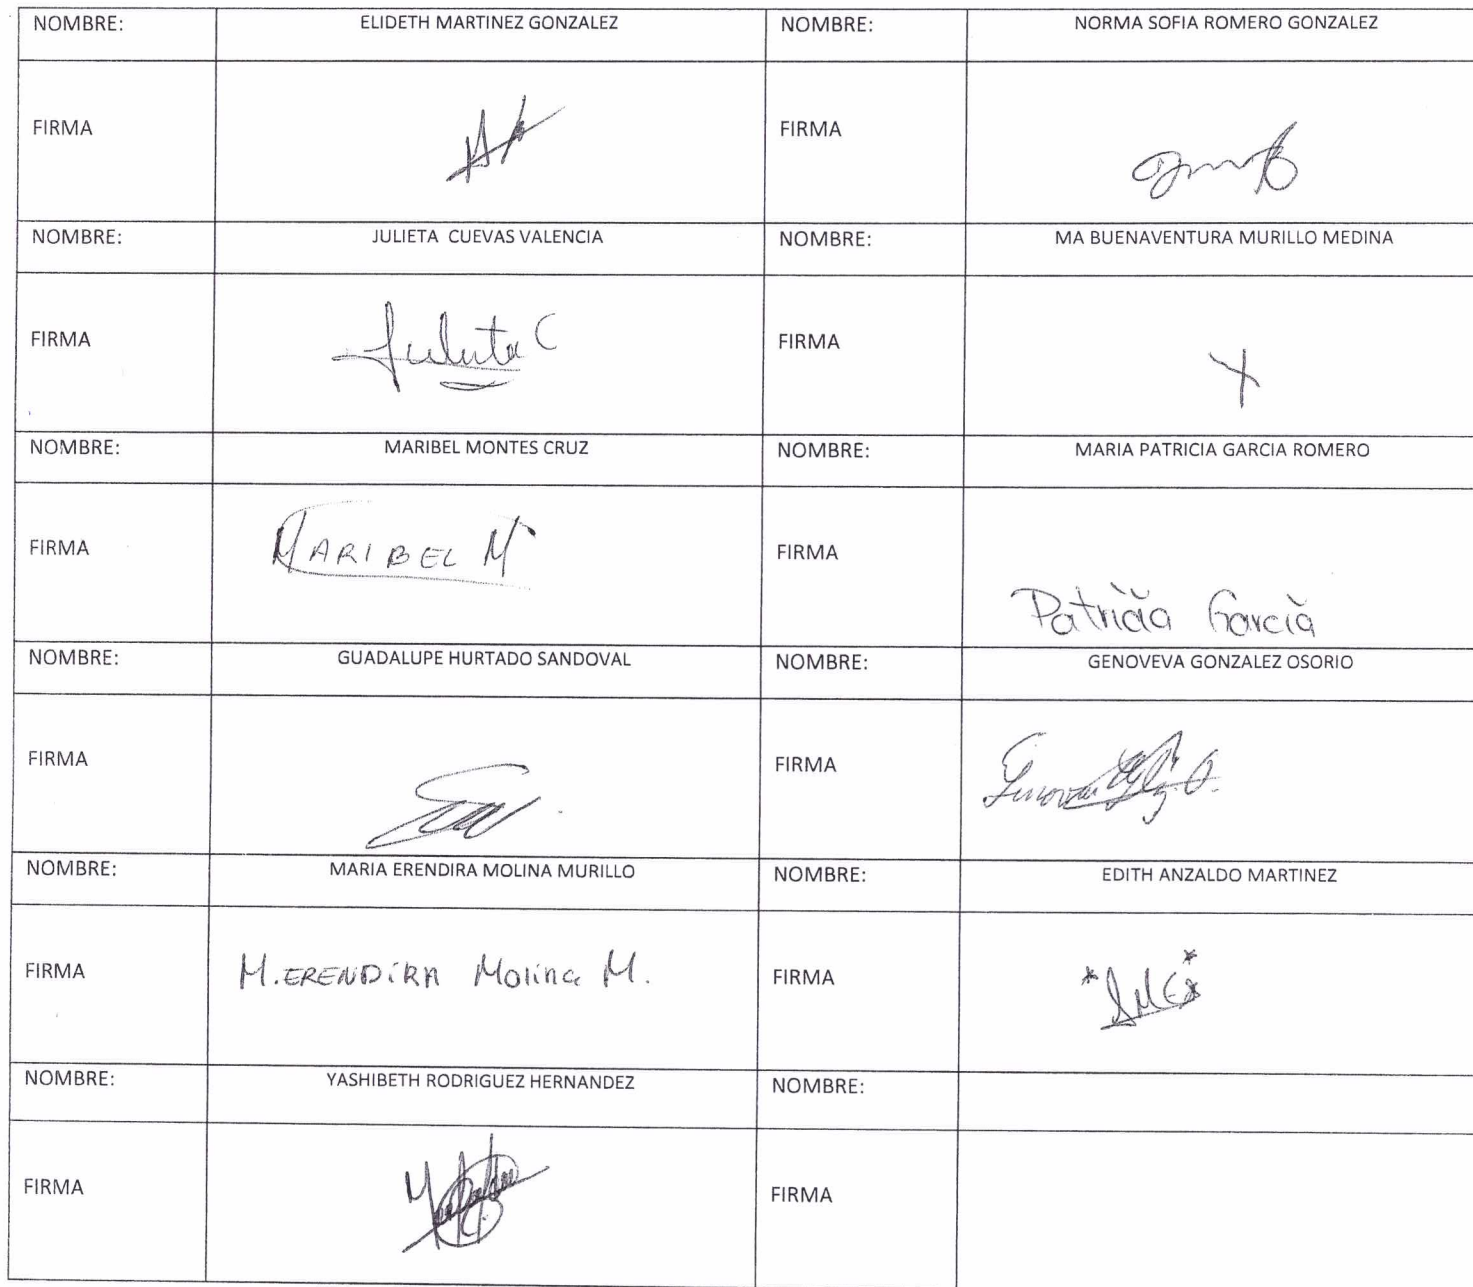 NOMBRE: ELIDETH MARTINEZ GONZALEZ NOMBRE: NORMA SOFIA ROMERO GONZALEZ
FIRMA FIRMA
NOMBRE: JULIETA CUEVAS VALENCIA NOMBRE: MA BUENAVENTURA MURILLO MEDINA
FIRMA Julieta C FIRMA
NOMBRE: MARIBEL MONTES CRUZ NOMBRE: MARIA PATRICIA GARCIA ROMERO
FIRMA MARIBEL M FIRMA Patricia Garcia
NOMBRE: GUADALUPE HURTADO SANDOVAL NOMBRE: GENOVEVA GONZALEZ OSORIO
FIRMA FIRMA
NOMBRE: MARIA ERENDIRA MOLINA MURILLO NOMBRE: EDITH ANZALDO MARTINEZ
FIRMA M. ERENDiRA Molina M. FIRMA
NOMBRE: YASHIBETH RODRIGUEZ HERNANDEZ NOMBRE:
FIRMA FIRMA